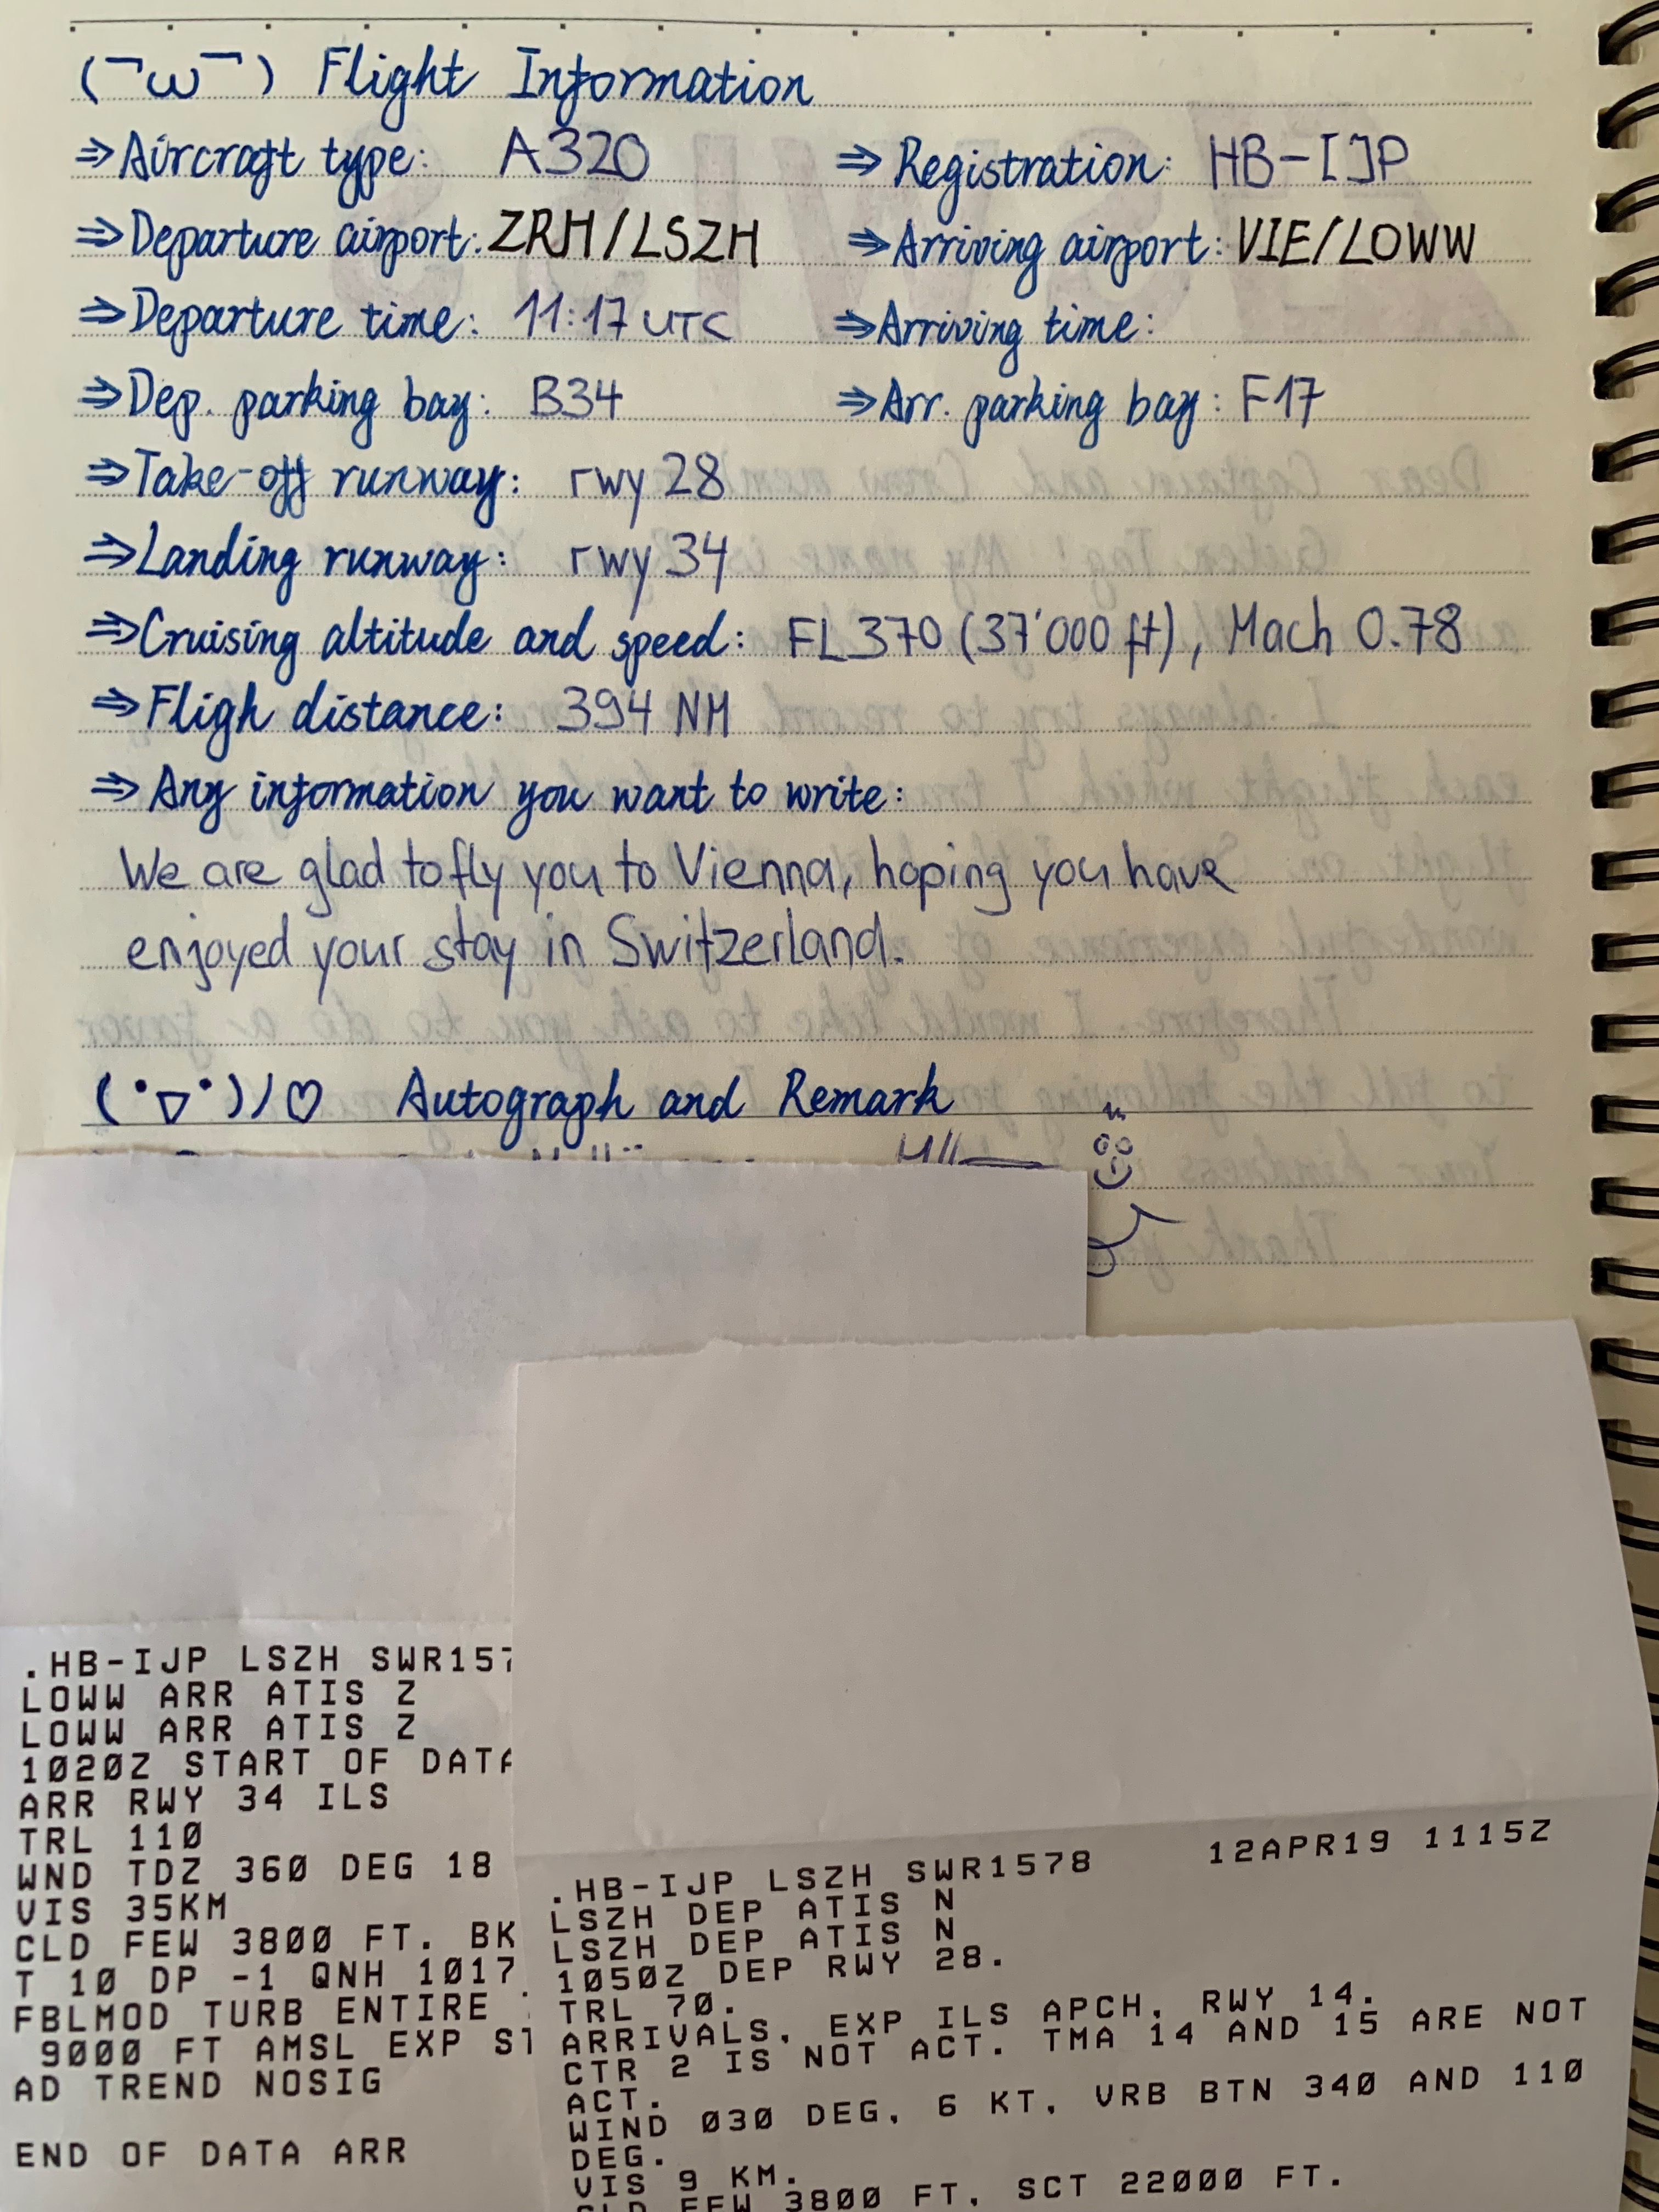 (¬ω¬) Flight Information
⇒Aircraft type: A320 ⇒Registration: HB-IJP
⇒Departure airport: ZRH/LSZH ⇒Arriving airport: VIE/LOWW
⇒Departure time: 11:17 UTC ⇒Arriving time:
⇒Dep. parking bay: B34 ⇒Arr. parking bay: F17
⇒Take-off runway: rwy 28
⇒Landing runway: rwy 34
⇒Cruising altitude and speed: FL370 (37'000 ft), Mach 0.78
⇒Fligh distance: 394 NM
⇒Any information you want to write:
We are glad to fly you to Vienna, hoping you have
enjoyed your stay in Switzerland.
(•▽•)/♡ Autograph and Remark
.HB-IJP LSZH SWR157
LOWW ARR ATIS Z
LOWW ARR ATIS Z
1020Z START OF DATA
ARR RWY 34 ILS
TRL 110
WND TDZ 360 DEG 18
VIS 35KM
CLD FEW 3800 FT. BK
T 10 DP -1 QNH 1017
FBLMOD TURB ENTIRE
9000 FT AMSL EXP
AD TREND NOSIG
END OF DATA ARR
.HB-IJP LSZH SWR1578 12APR19 1115Z
LSZH DEP ATIS N
LSZH DEP ATIS N
1050Z DEP RWY 28.
TRL 70.
ARRIVALS, EXP ILS APCH, RWY 14.
CTR 2 IS NOT ACT. TMA 14 AND 15 ARE NOT
ACT.
WIND 030 DEG, 6 KT, VRB BTN 340 AND 110
DEG.
VIS 9 KM.
CLD FEW 3800 FT, SCT 22000 FT.